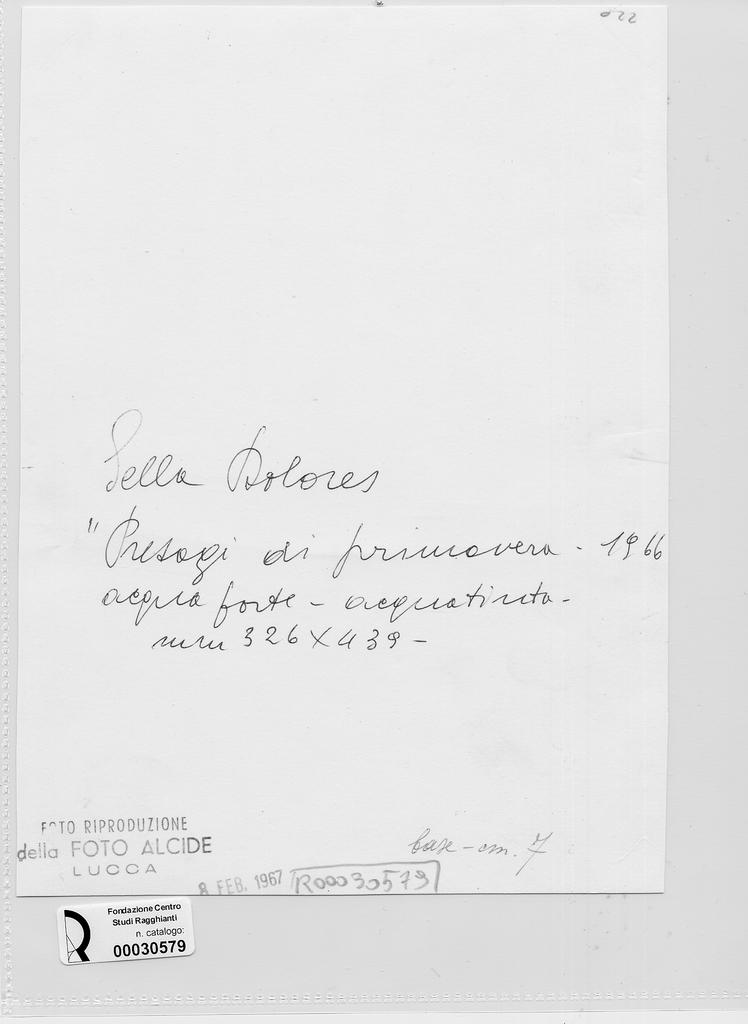 022
Sella Dolores
"Presagi di primavera - 1966
acqua forte - acquatinta -
mm 326 X 439 -
FOTO RIPRODUZIONE
della FOTO ALCIDE
LUCCA
base - cm. 7
8 FEB. 1967 R00030579
Fondazione Centro
Studi Ragghianti
n. catalogo:
00030579